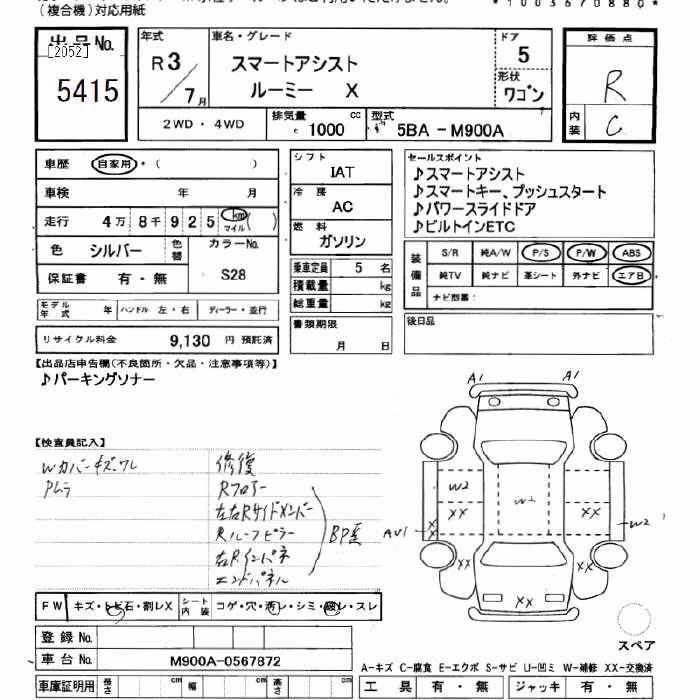 (複合機)対応用紙
出品No.
[2052]
5415
年式
R3
7月
車名・グレード
スマートアシスト
ルーミー X
ドア
5
形状
ワゴン
2WD・4WD
排気量
cc
1000
型式
5BA-M900A
評価点
R
内装
C
車歴
自家用・( )
車検 年 月
走行 4万 8千 9 2 5 km マイル ( )
色 シルバー
色替
カラーNo.
S28
保証書 有・無
モデル年式 年
ハンドル 左・右
ディーラー・並行
リサイクル料金 9,130 円 預託済
シフト
IAT
冷房
AC
燃料
ガソリン
乗車定員 5 名
積載量 kg
総重量 kg
書類期限
月 日
セールスポイント
♪スマートアシスト
♪スマートキー、プッシュスタート
♪パワースライドドア
♪ビルトインETC
装備品
S/R 純A/W P/S P/W ABS
純TV 純ナビ 革シート 外ナビ エアB
ナビ型番:
後日品
【出品店申告欄(不良箇所・欠品・注意事項等)】
♪パーキングソナー
【検査員記入】
Wカバーキズワレ
Pムラ
修復
Rフロアー
左右Rサイドメンバー
Rルーフピラー
右Rインパネ
エンドパネル
A1
A1
W2
XX
W2
XX
AU1
X
X
W2
XX
XX
XX
FW
キズ・トビ石・割レX
シート内装
コゲ・穴・汚レ・シミ・破レ・スレ
登録No.
車台No.
M900A-0567872
車庫証明用
長さ cm
幅 cm
高さ cm
スペア
A-キズ C-腐食 E-エクボ S-サビ U-凹ミ W-補修 XX-交換
工具 有・無
ジャッキ 有・無